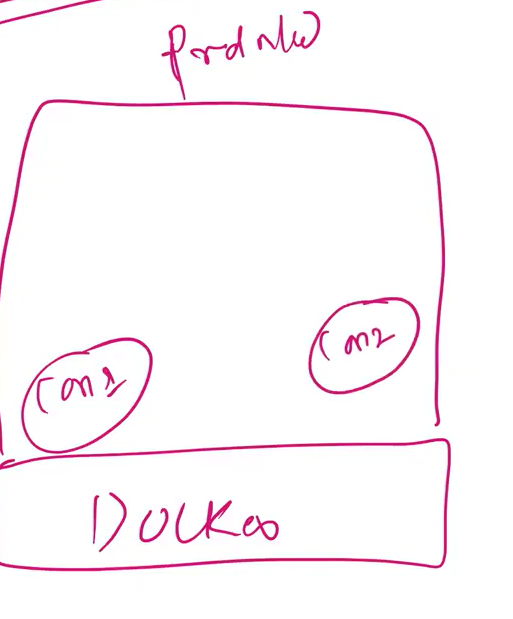 Prd n/w
Con2
Con1
Docker